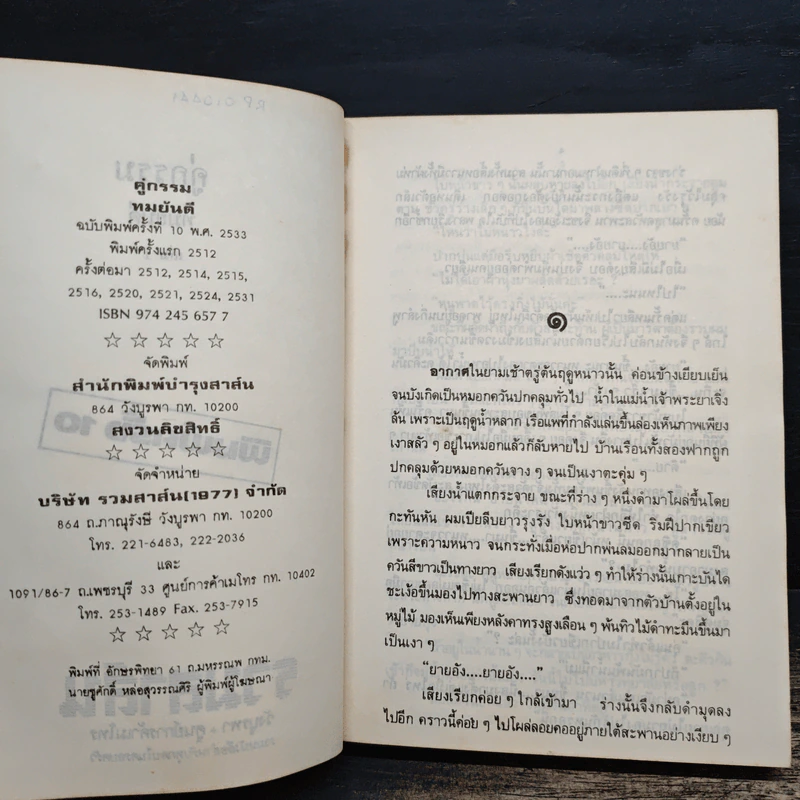 RP 010441
คู่กรรม
ทมยันตี
ฉบับพิมพ์ครั้งที่ 10 พ.ศ. 2533
พิมพ์ครั้งแรก 2512
ครั้งต่อมา 2512, 2514, 2515,
2516, 2520, 2521, 2524, 2531
ISBN 974 245 657 7
☆ ☆ ☆ ☆ ☆
จัดพิมพ์
สำนักพิมพ์บำรุงสาส์น
864 วังบูรพา กท. 10200
สงวนลิขสิทธิ์
☆ ☆ ☆ ☆ ☆
จัดจำหน่าย
บริษัท รวมสาส์น(1977) จำกัด
864 ถ.ภาณุรังษี วังบูรพา กท. 10200
โทร. 221-6483, 222-2036
และ
1091/86-7 ถ.เพชรบุรี 33 ศูนย์การค้าเมโทร กท. 10402
โทร. 253-1489 Fax. 253-7915
☆ ☆ ☆ ☆ ☆
พิมพ์ที่ อักษรพิทยา 61 ถ.มหรรณพ กทม.
นายชูศักดิ์ หล่อสุวรรณศิริ ผู้พิมพ์ผู้โฆษณา
๑
อากาศในยามเช้าตรู่ต้นฤดูหนาวนั้น ค่อนข้างเยียบเย็น
จนบังเกิดเป็นหมอกควันปกคลุมทั่วไป น้ำในแม่น้ำเจ้าพระยาเจิ่ง
ล้น เพราะเป็นฤดูน้ำหลาก เรือแพที่กำลังแล่นขึ้นล่องเห็นภาพเพียง
เงาสลัว ๆ อยู่ในหมอกแล้วก็ลับหายไป บ้านเรือนทั้งสองฟากถูก
ปกคลุมด้วยหมอกควันจาง ๆ จนเป็นเงาตะคุ่ม ๆ
เสียงน้ำแตกกระจาย ขณะที่ร่าง ๆ หนึ่งดำมาโผล่ขึ้นโดย
กะทันหัน ผมเปียลีบยาวรุงรัง ใบหน้าขาวซีด ริมฝีปากเขียว
เพราะความหนาว จนกระทั่งเมื่อห่อปากพ่นลมออกมากลายเป็น
ควันสีขาวเป็นทางยาว เสียงเรียกดังแว่ว ๆ ทำให้ร่างนั้นเกาะบันได
ชะเง้อขึ้นมองไปทางสะพานยาว ซึ่งทอดมาจากตัวบ้านตั้งอยู่ใน
หมู่ไม้ มองเห็นเพียงหลังคาทรงสูงเลือน ๆ พ้นทิวไม้ดำทะมึนขึ้นมา
เป็นเงา ๆ
“ยายอัง....ยายอัง....”
เสียงเรียกค่อย ๆ ใกล้เข้ามา ร่างนั้นจึงกลับดำมุดลง
ไปอีก คราวนี้ค่อย ๆ ไปโผล่ลอยคออยู่ภายใต้สะพานอย่างเงียบ ๆ